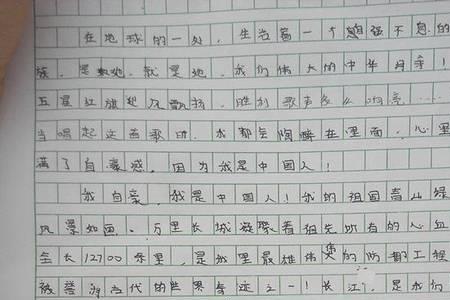 在地球的一处，生活着一个自强不息的
族，是她，就是她，我们伟大的中华母亲！
五星红旗迎风飘扬，胜利歌声多么响亮……
当唱起这首歌时，我都会陶醉在里面，心里
满了自豪感，因为我是中国人！
我自豪，我是中国人！我的祖国青山绿
风景如画。万里长城凝聚着祖先所有的心血
全长12700余里，是我里最雄伟的防御工程
被誉为古代的世界奇迹之一！长江，是我们